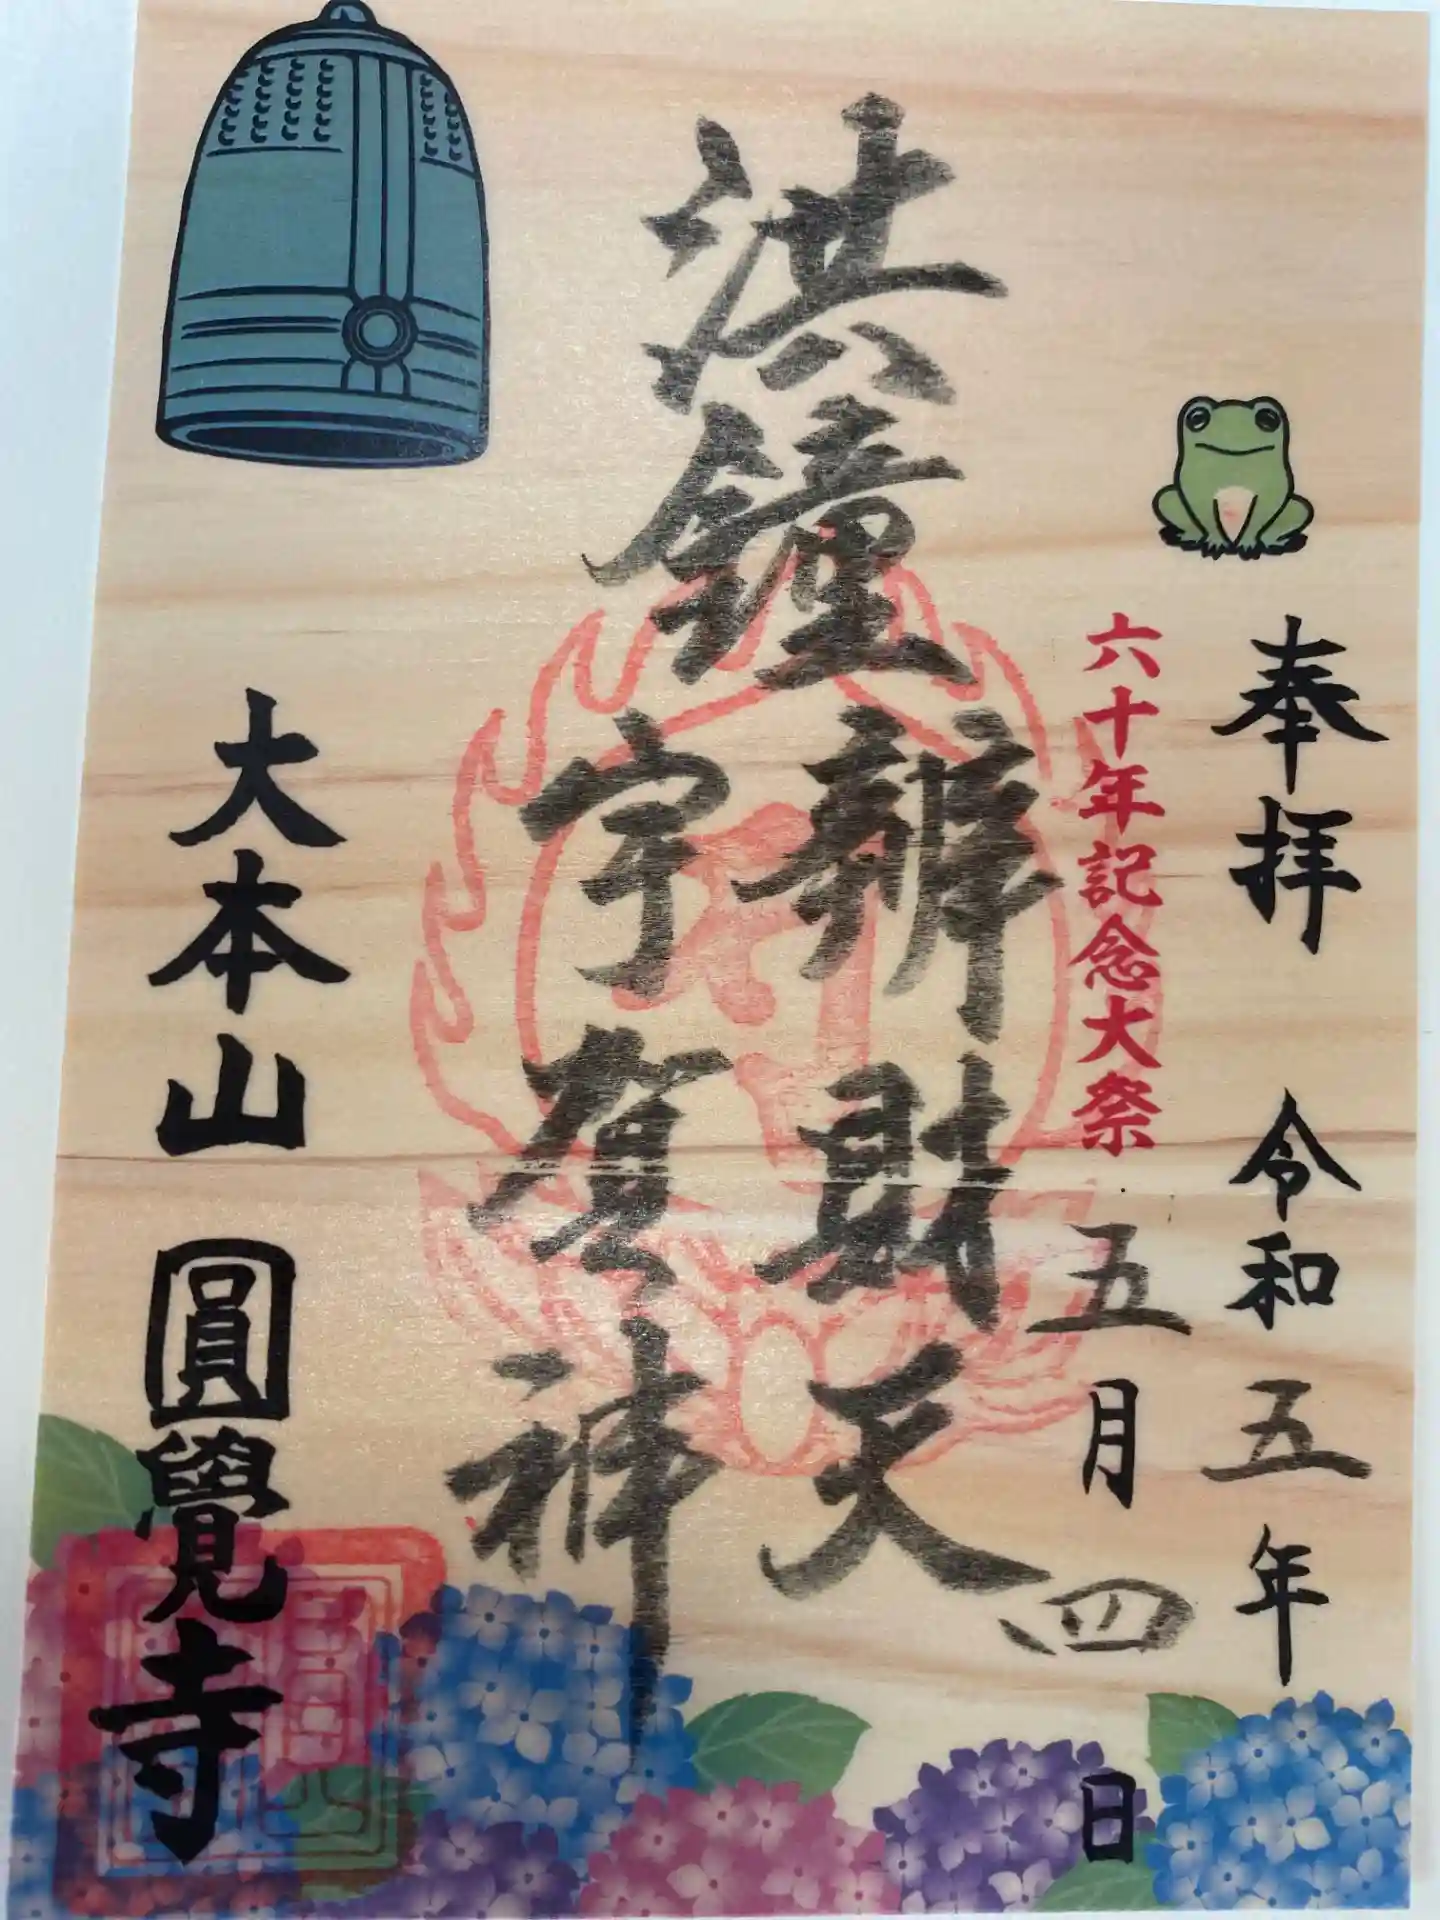 奉拝 令和五年
五月四日
六十年記念大祭
洪鐘
辨財天
宇賀神
大本山 圓覺寺